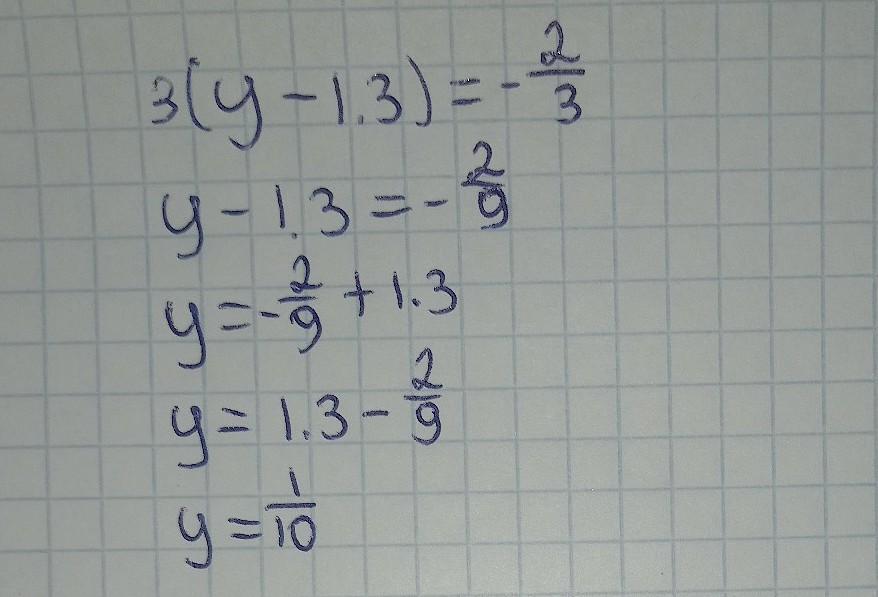 3(y-1.3)=-2/3
y-1.3=-2/9
y=-2/9+1.3
y=1.3-2/9
y=1/10